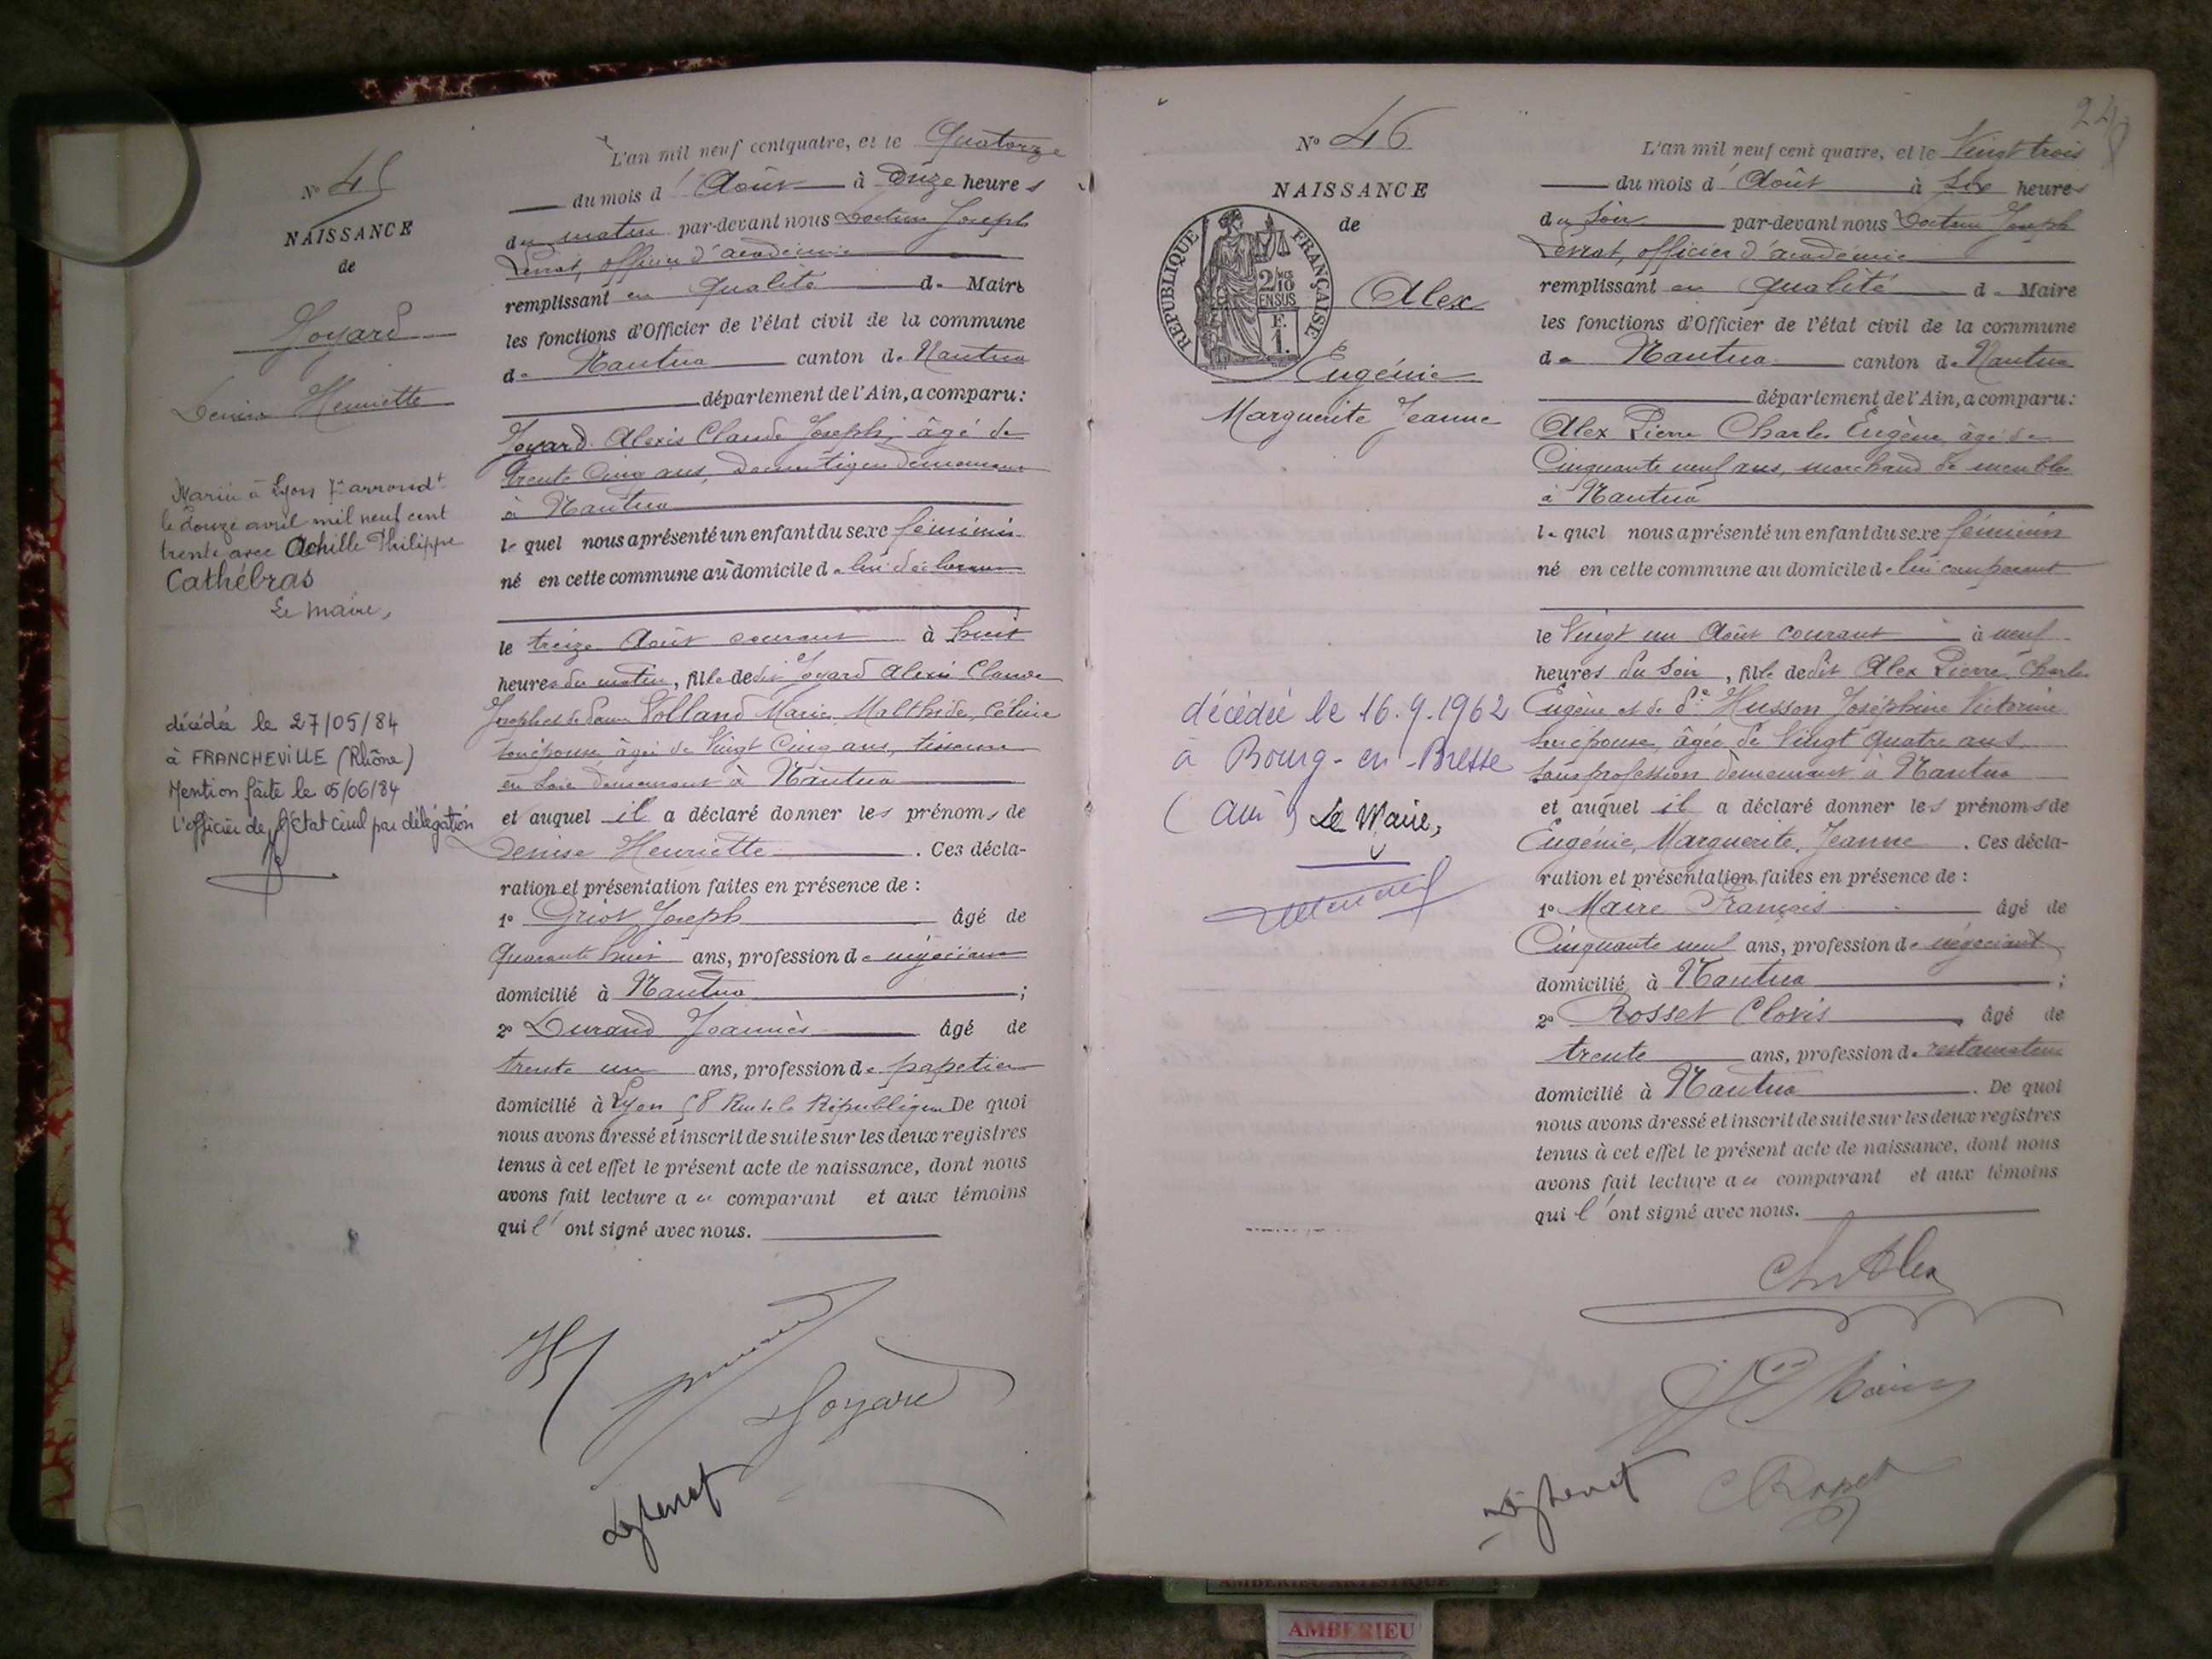 N° 45
NAISSANCE
de
Joyard
Denise Henriette
Mariée à Lyon 7e arrondt
le douze avril mil neuf cent
trente avec Achille Philippe
Cathébras
Le maire,
décédée le 27/05/84
à FRANCHEVILLE (Rhône)
Mention faite le 05/06/84
l'officier de l'Etat Civil par délégation
L'an mil neuf cent quatre, et le Quatorze
du mois d'Août à Onze heures
du matin par-devant nous Docteur Joseph
Levrat, officier d'académie
remplissant en qualité de Maire
les fonctions d'Officier de l'état civil de la commune
de Nantua canton de Nantua
département de l'Ain, a comparu :
Joyard Alexis Claude Joseph, âgé de
trente cinq ans, domestique demeurant
à Nantua
lequel nous a présenté un enfant du sexe féminin
né en cette commune au domicile de lui déclarant
le treize Août courant à huit
heures du matin, fille de dit Joyard Alexis Claude
Joseph et de Volland Marie, Malthide, Céline
son épouse, âgée de Vingt Cinq ans, tisseuse
en soie demeurant à Nantua
et auquel il a déclaré donner les prénoms de
Denise Henriette . Ces décla-
ration et présentation faites en présence de :
1° Griot Joseph âgé de
Quarante huit ans, profession de négociant
domicilié à Nantua ;
2° Durand Joannès âgé de
trente un ans, profession de papetier
domicilié à Lyon 58 Rue de la République De quoi
nous avons dressé et inscrit de suite sur les deux registres
tenus à cet effet le présent acte de naissance, dont nous
avons fait lecture au comparant et aux témoins
qui l'ont signé avec nous.
Joyard
N° 46
NAISSANCE
de
REPUBLIQUE FRANÇAISE
2/10 EN SUS
F.
1.
Alex
Eugénie
Marguerite Jeanne
décédée le 16.9.1962
à Bourg-en-Bresse
(Ain) Le Maire,
24
L'an mil neuf cent quatre, et le Vingt trois
du mois d'Août à Six heures
du Soir par-devant nous Docteur Joseph
Levrat, officier d'académie
remplissant en qualité de Maire
les fonctions d'Officier de l'état civil de la commune
de Nantua canton de Nantua
département de l'Ain, a comparu :
Alex Pierre Charles Eugène, âgé de
Cinquante neuf ans, marchand de meubles
à Nantua
lequel nous a présenté un enfant du sexe féminin
né en cette commune au domicile de lui comparant
le Vingt un Août courant à neuf
heures du Soir, fille de dit Alex Pierre Charles
Eugène et de De Husson Joséphine Victorine
son épouse, âgée de Vingt quatre ans
sans profession demeurant à Nantua
et auquel il a déclaré donner les prénoms de
Eugénie, Marguerite, Jeanne . Ces décla-
ration et présentation faites en présence de :
1° Maire François âgé de
Cinquante neuf ans, profession de négociant
domicilié à Nantua ;
2° Rosset Clovis , âgé de
trente ans, profession de restaurateur
domicilié à Nantua . De quoi
nous avons dressé et inscrit de suite sur les deux registres
tenus à cet effet le présent acte de naissance, dont nous
avons fait lecture au comparant et aux témoins
qui l'ont signé avec nous.
Ch Alex
C Rosset
AMBERIEU ARTISTIQUE
AMBERIEU